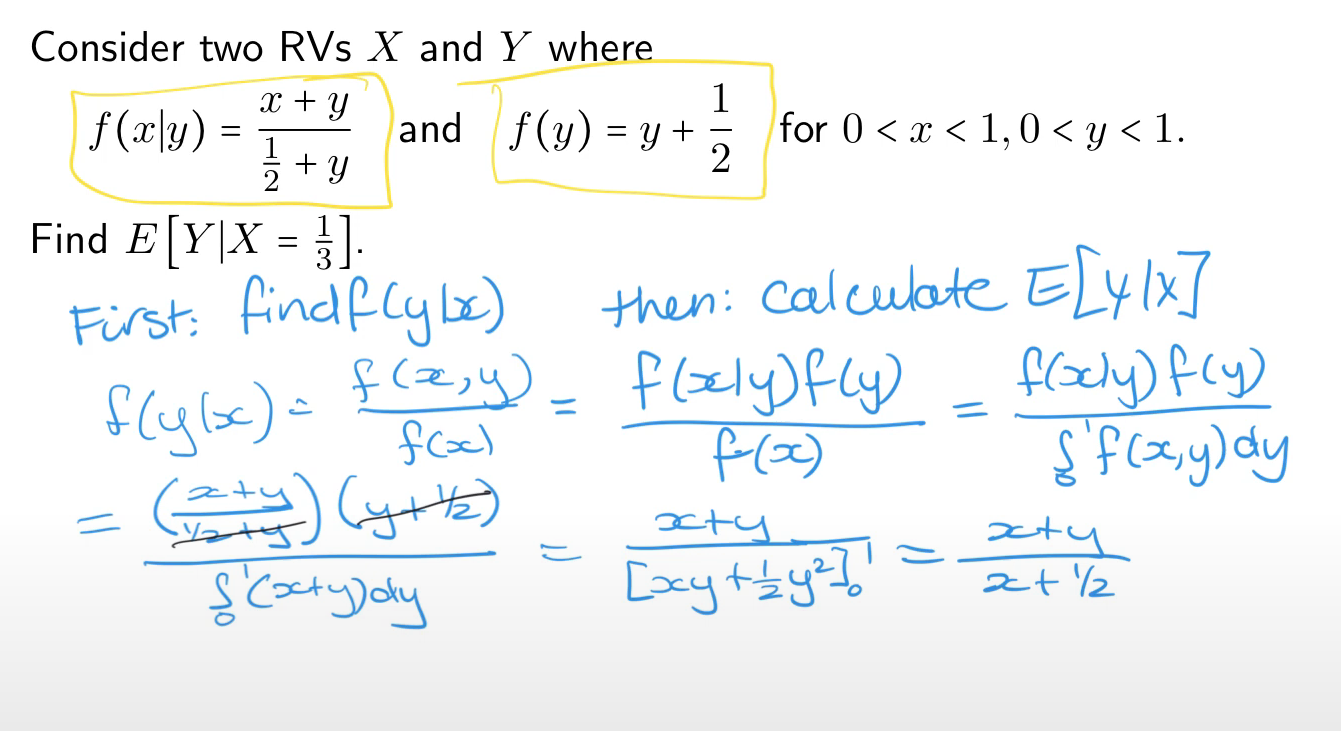 Consider two RVs X and Y where
f(x|y) = (x + y)/(1/2 + y) and f(y) = y + 1/2 for 0 < x < 1, 0 < y < 1.
Find E[Y|X = 1/3].
First: find f(y|x) then: calculate E[Y|X]
f(y|x) = f(x,y)/f(x) = f(x|y)f(y)/f(x) = f(x|y)f(y)/∫₀¹f(x,y)dy
= ((x+y)/(1/2+y))(y+1/2)/∫₀¹(x+y)dy = (x+y)/[xy+1/2y²]₀¹ = (x+y)/(x+1/2)